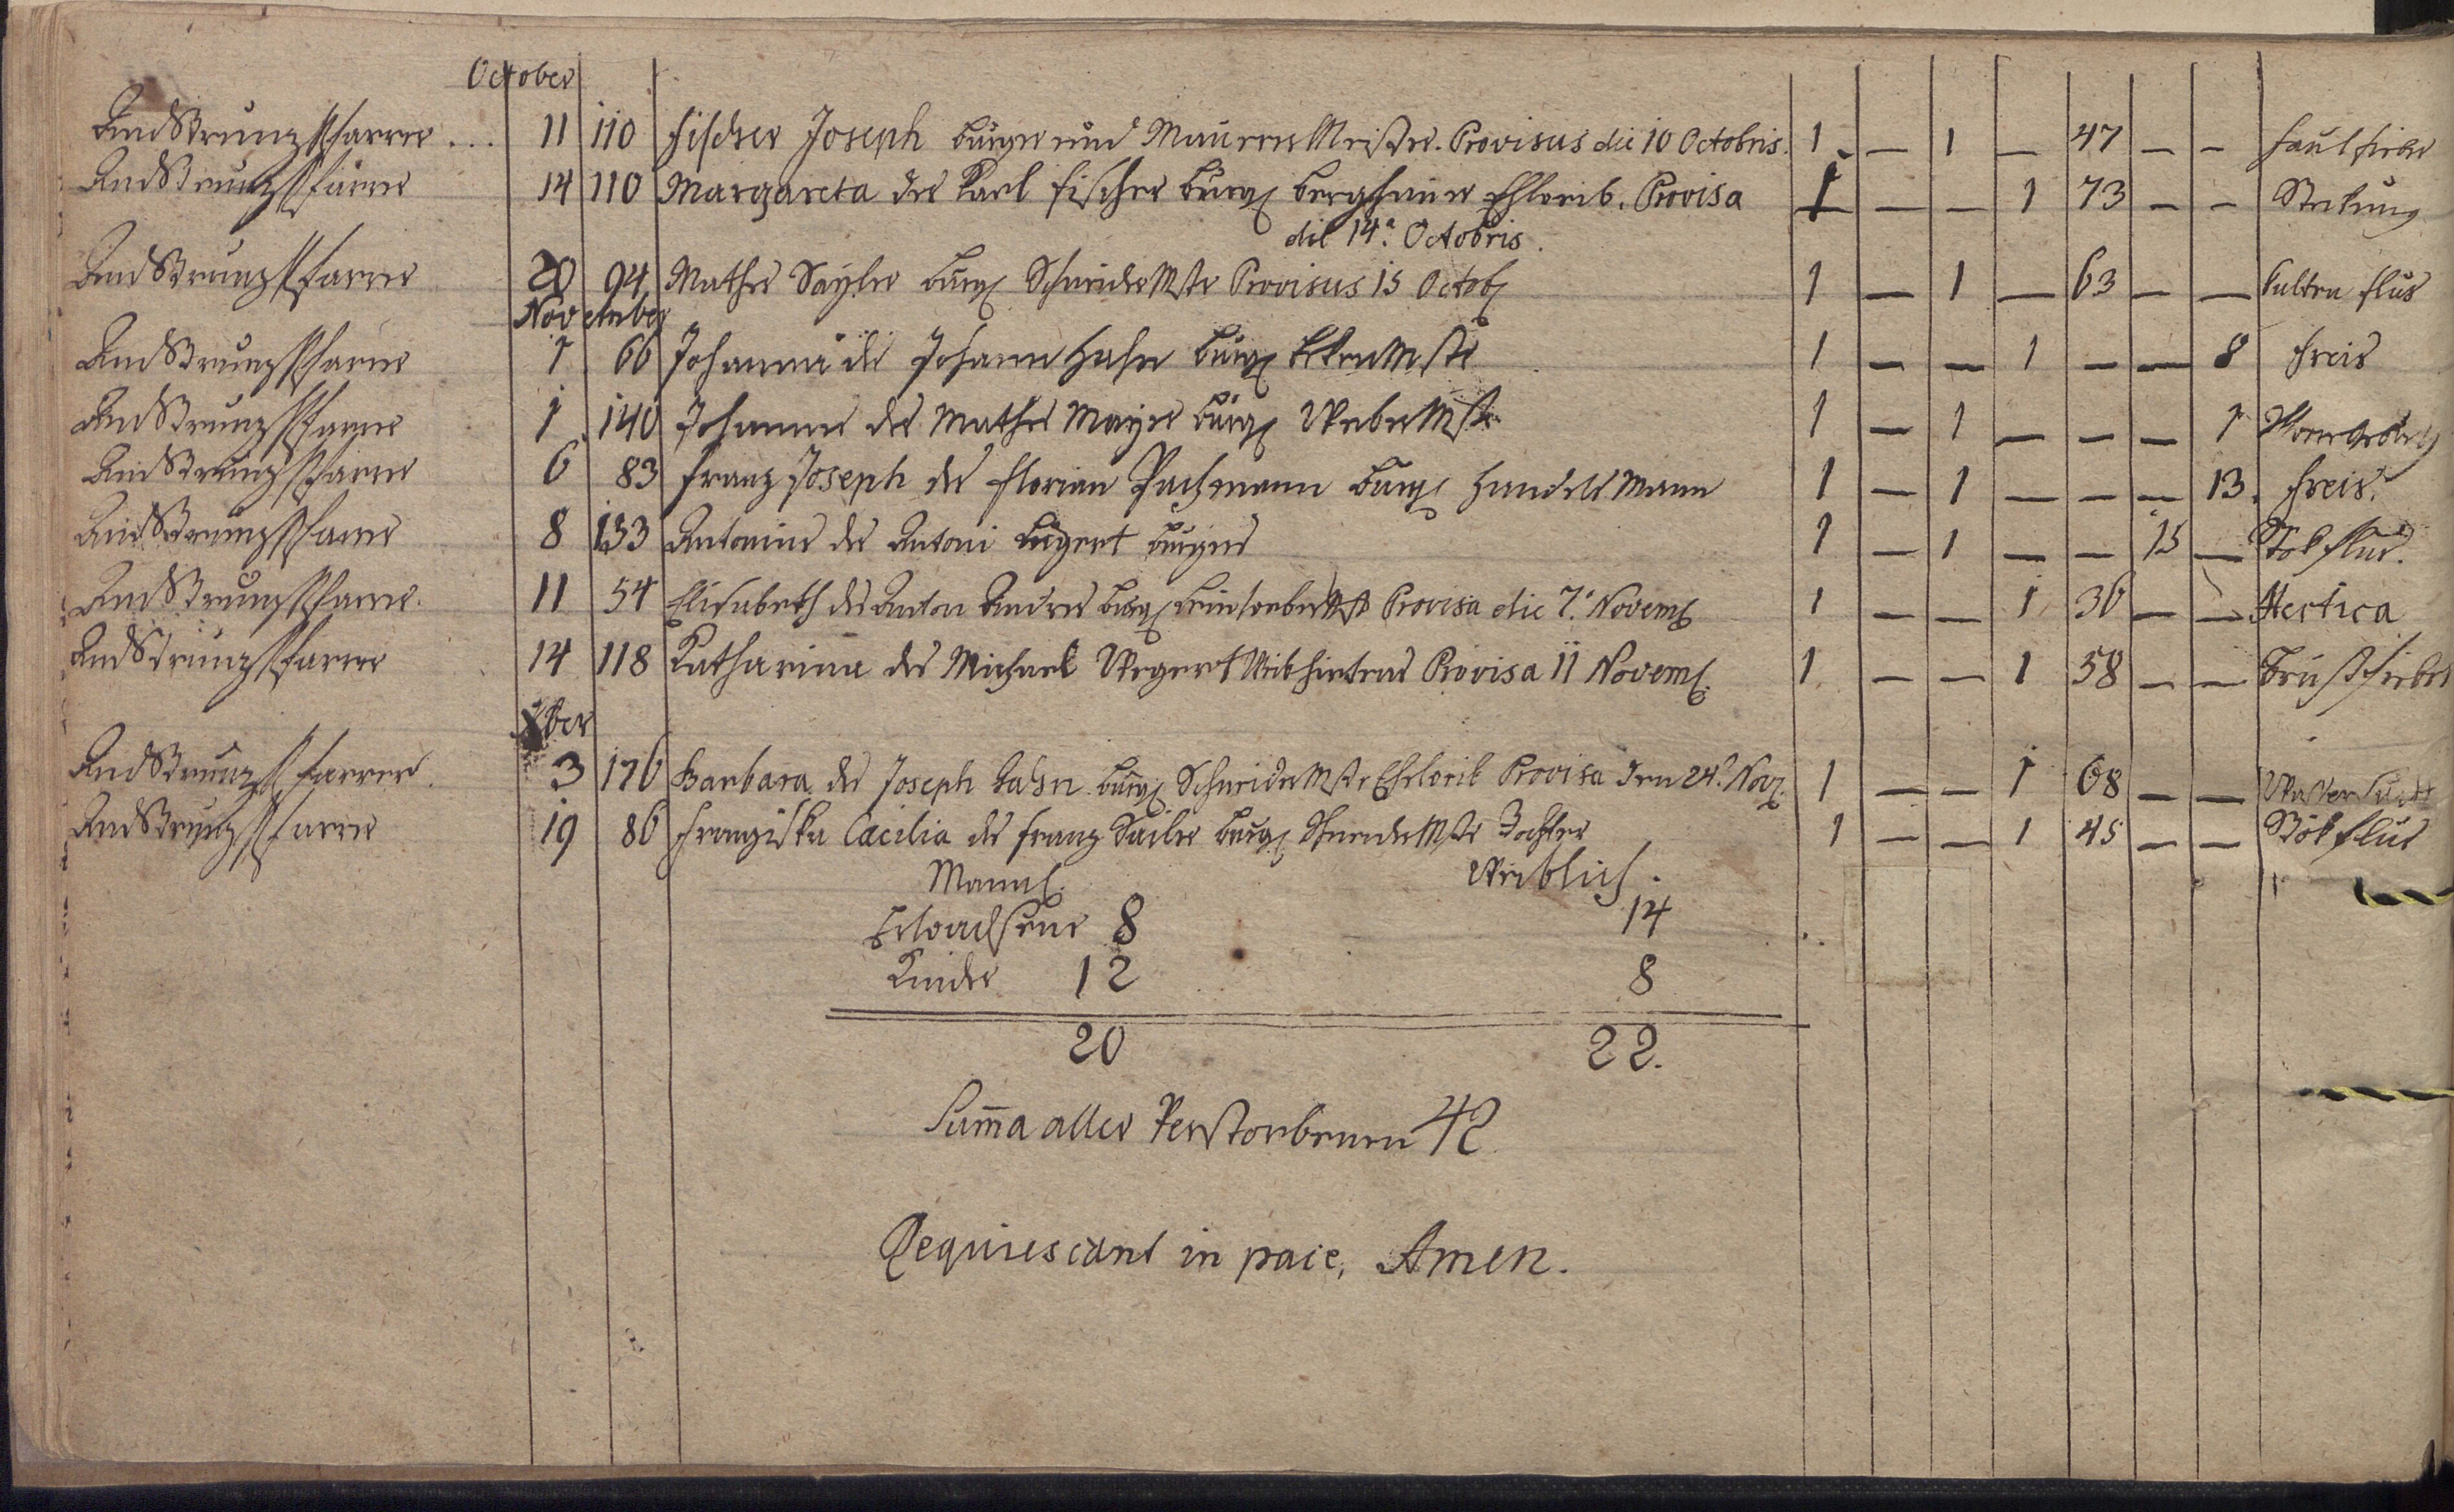 October
And Strunz Pfarrer ... 11 110 Fischer Joseph burger und Maurer Meister. Provisus die 10 Octobris. 1 — 1 — 47 — — Faulfieber
And Strunz Pfarrer 14 110 Margareta des Karl Fischer burgl Ehweib. Provisa 1 — — 1 73 — —
die 14ª Octobris.
And Strunz Pfarrer 20 94 Mathes Sayler burgl Schneider Mstr Provisus 15 Octob 1 — 1 — 63 — — flus
November
And Strunz Pfarrer 1 66 Johanna des Johann Hahn burgl Mstr 1 — — 1 — — 8 Freis
And Strunz Pfarrer 1 140 Johannes des Mathes Mayer burgl Weber Mstr 1 — 1 — — — 1
And Strunz Pfarrer 6 83 Franz Joseph des Florian Pachmann burgl Handels Mann 1 — 1 — — — 13 Freis.
And Strunz Pfarrer 8 133 Antonius des Antoni burgers 1 — 1 — — 15 — Stökflus.
And Strunz Pfarrer. 11 54 Elisabeth des Anton burgl Leinweber Mstr Provisa die 7ª Novem 1 — — 1 36 — — Hectica
And Strunz Pfarrer 14 118 Katharina des Michael Wegert Provisa 11 Novem 1 — — 1 58 — — Brustfieber
Xber
And Strunz Pfarrer. 3 176 Barbara des Joseph Hahn burgl Schneider Mstr Ehweib Provisa den 24t Nov. 1 — — 1 68 — — Wassersucht
And Strunz Pfarrer 19 86 Franziska Cacilia des Franz Sailer burgl Schneider Mstr Tochter 1 — — 1 45 — — Stökflus
Mannl. Weiblich.
Erwachsene 8 14
Kinder 12 8
20 22.
Sum̄a aller Verstorbenen 42
Requiescant in pace, Amen.